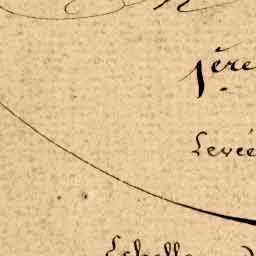 1ère
Levée
Echelle